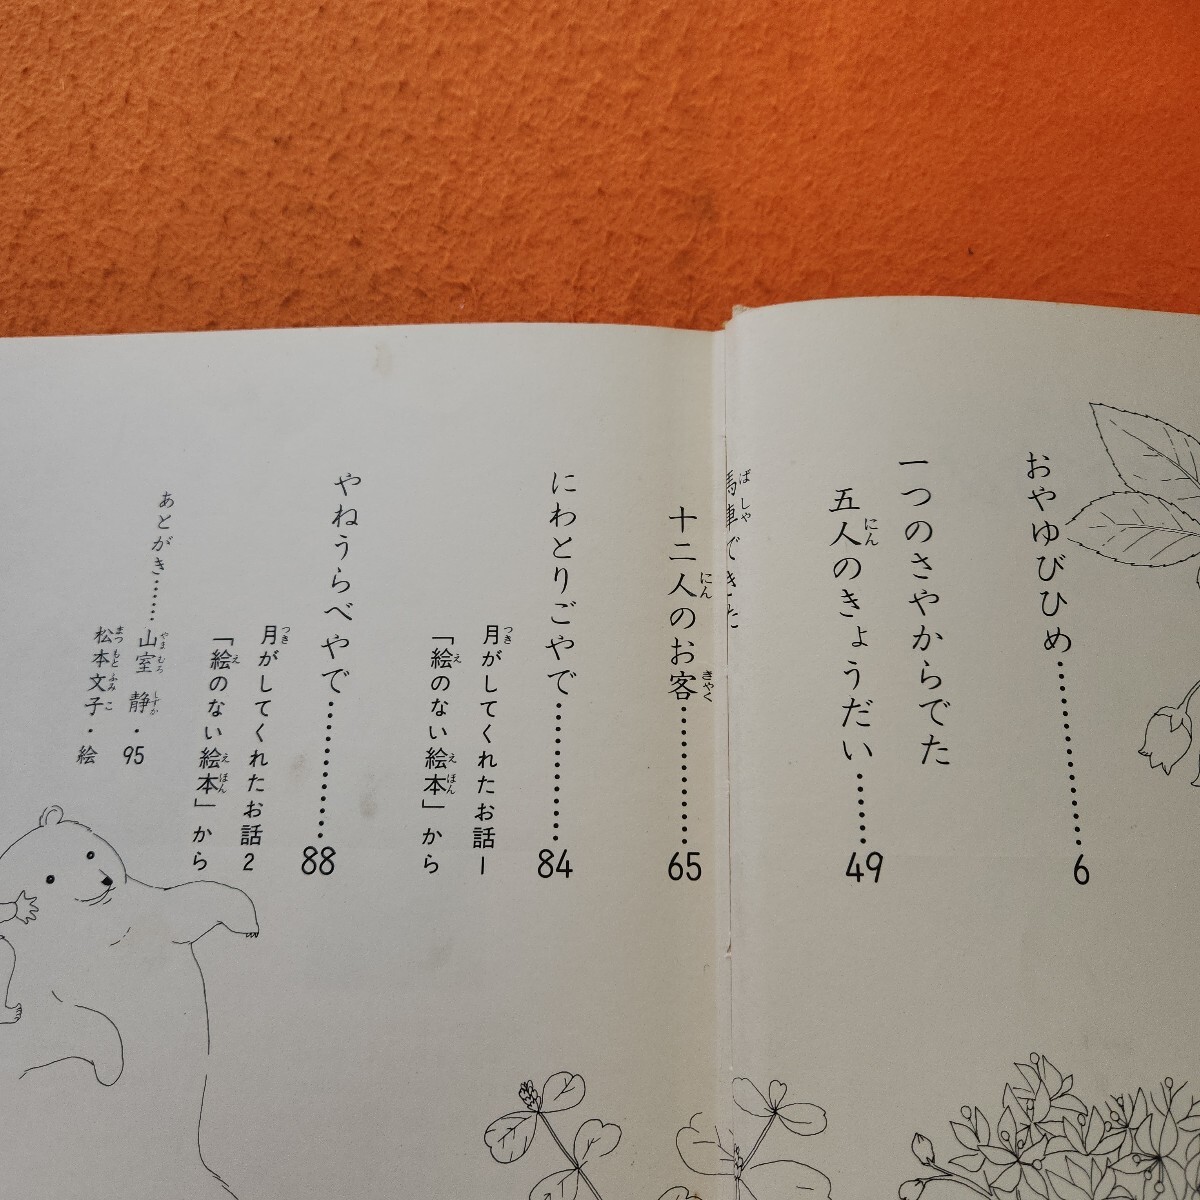 おやゆびひめ…………6
一つのさやからでた
五人のきょうだい……49
馬車できた
十二人のお客…………65
にわとりごやで…………84
月がしてくれたお話1
「絵のない絵本」から
やねうらべやで…………88
月がしてくれたお話2
「絵のない絵本」から
あとがき……山室 静・95
松本文子・絵